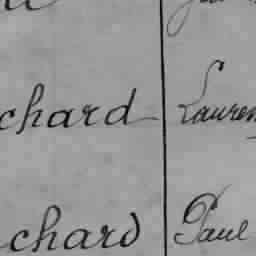 chard Lauren
chard Paul